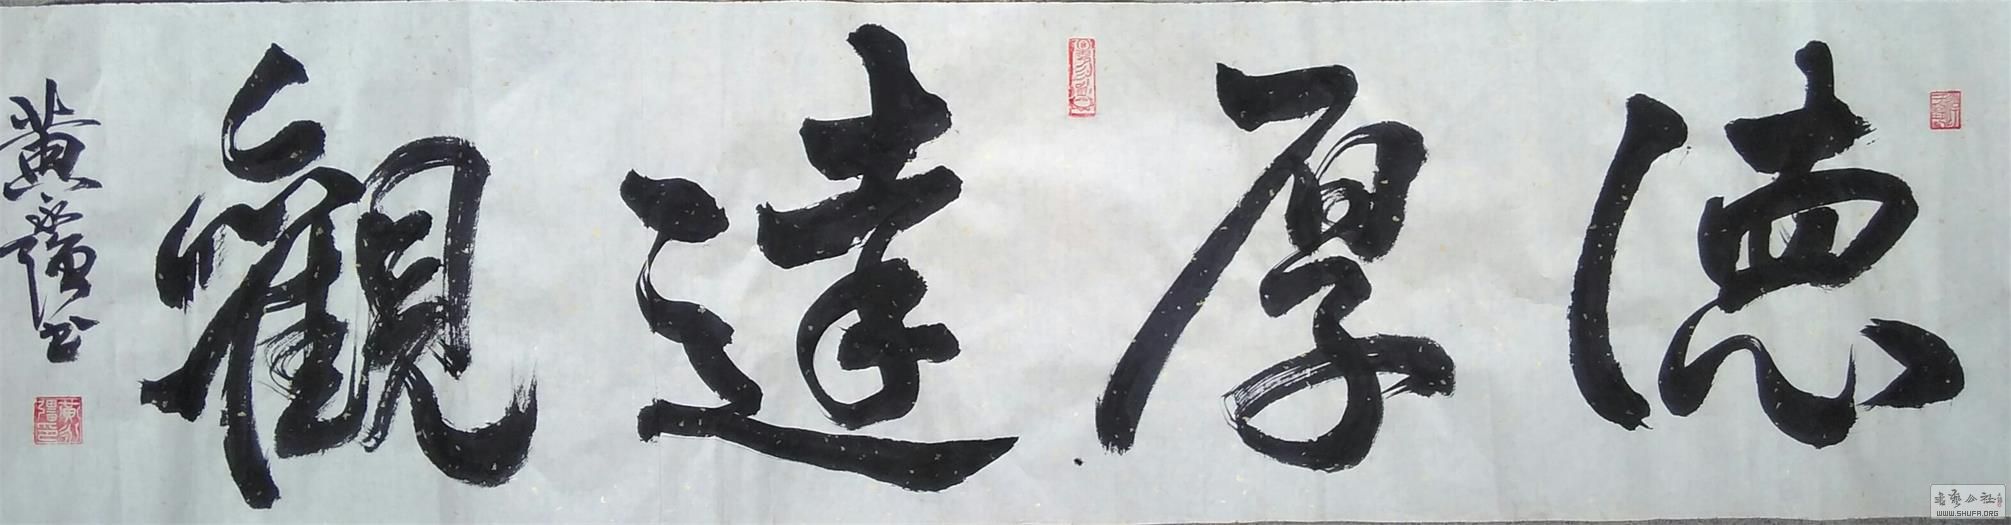 德厚達觀
黄永强书
書法公社
WWW.SHUFA.ORG